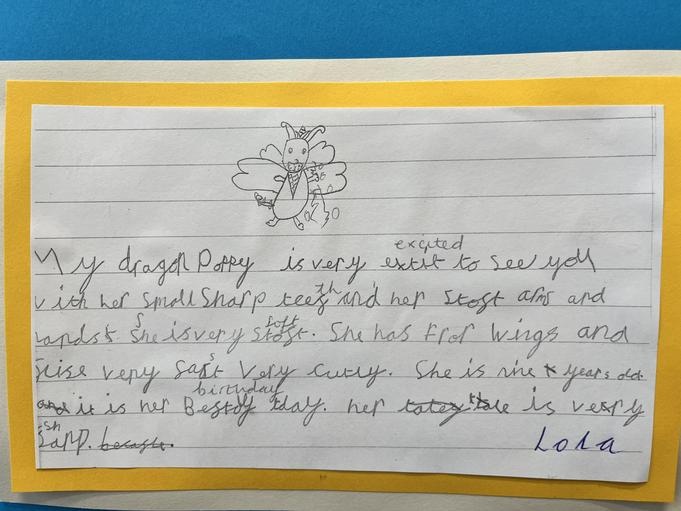 excited
My dragon Poppy is very extit to see you
with her small sharp teeth and her stost arms and
hands. She is very soft. She has fror wings and
very very curly. She is nine years old.
birthday
and it is her Bestdy tday. her tale is very
sharp. becasue.
Lola